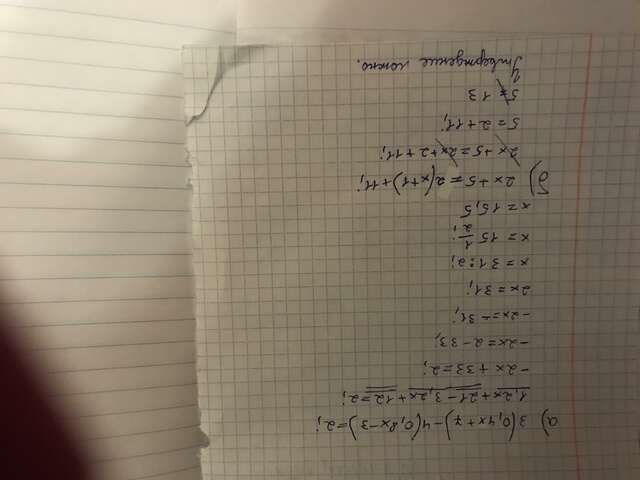 а) 3(0,4x+7)-4(0,8x-3)=2;
1,2x+21-3,2x+12=2;
-2x+33=2;
-2x=2-33;
-2x=-31;
2x=31;
x=31:2;
x=15 1/2;
x=15,5
б) 2x+5=2(x+1)+11;
2x+5=2x+2+11;
5=2+11;
5≠13
Утверждение ложно.